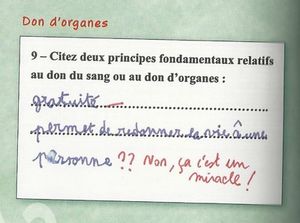 Don d'organes
9 – Citez deux principes fondamentaux relatifs
au don du sang ou au don d'organes :
gratuité
permet de redonner la vie à une
personne ?? Non, ça c'est un
miracle !